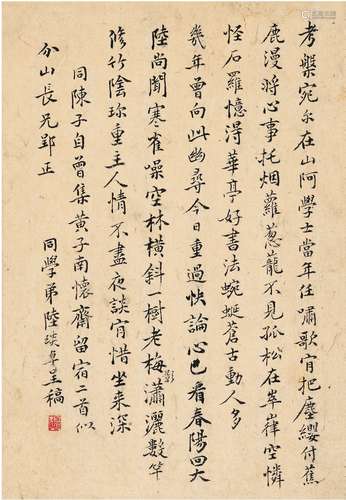 考槃宛尔在山阿學士當年任嘯歌肯把塵纓付蕉
鹿漫将心事托烟蘿葱蘢不見孤松在崒嵂空憐
怪石羅憶得華亭好書法蜿蜒蒼古動人多
幾年曾向此幽尋今日重過快論心已看春陽回大
陸尚聞寒雀噪空林橫斜一樹老梅影瀟灑數竿
修竹陰珎重主人情不盡夜談肯惜坐来深
同陳子自曾集黄子南懷齋留宿二首似
分山長兄郢正
同學弟陸 呈稿